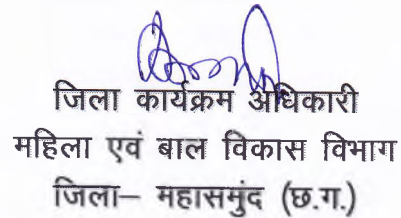 जिला कार्यक्रम अधिकारी
महिला एवं बाल विकास विभाग
जिला– महासमुंद (छ.ग.)